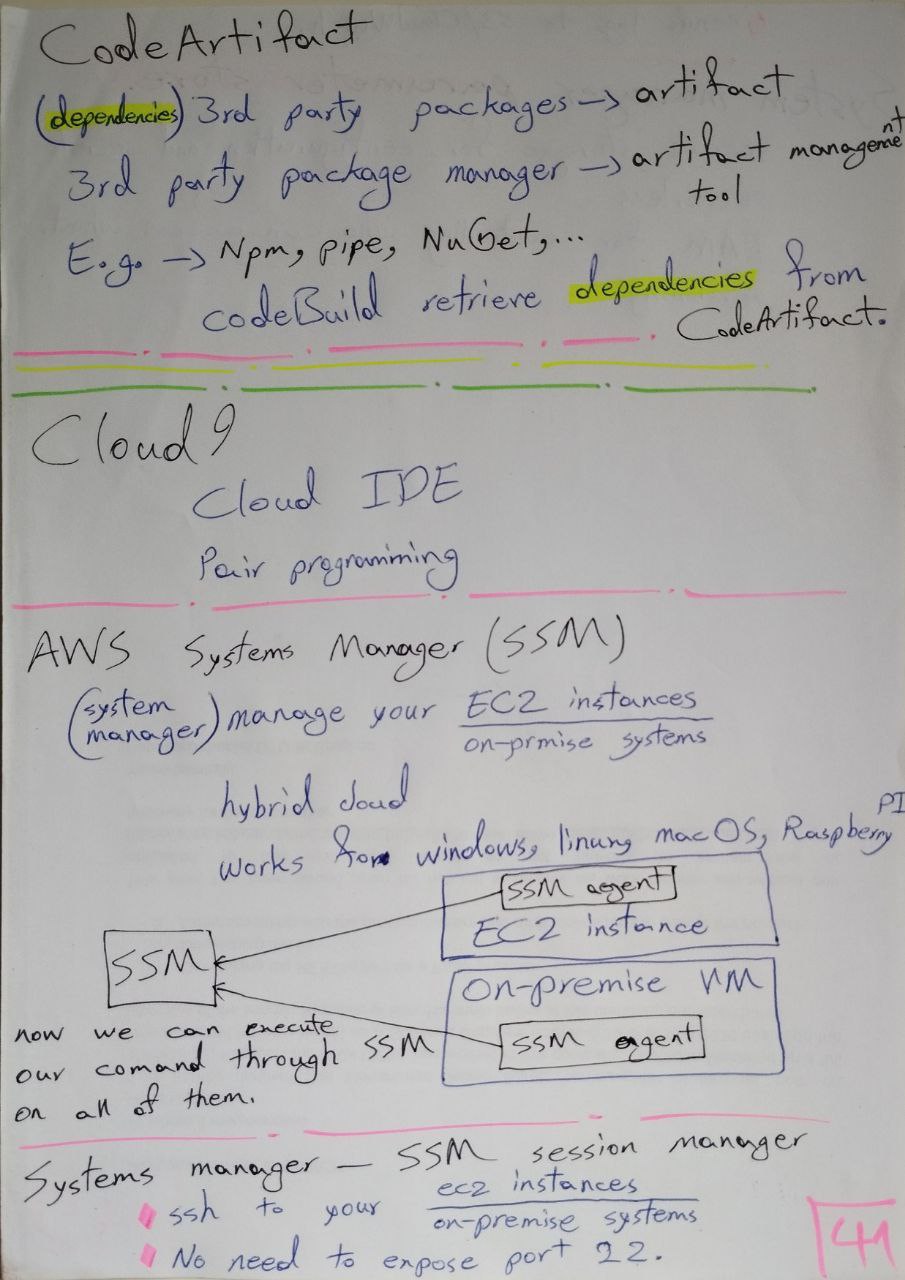 CodeArtifact
(dependencies) 3rd party packages → artifact
3rd party package manager → artifact management tool
E.g. → Npm, pipe, NuGet,...
codeBuild retrieve dependencies from
CodeArtifact.
Cloud9
Cloud IDE
Pair programming
AWS Systems Manager (SSM)
(system manager) manage your EC2 instances
on-prmise systems
hybrid cloud
works for windows, linux, macOS, Raspberry PI
SSM agent
EC2 instance
SSM
On-premise VM
SSM agent
now we can execute
our comand through SSM
on all of them.
Systems manager – SSM session manager
ssh to your ec2 instances
on-premise systems
No need to expose port 22.
41